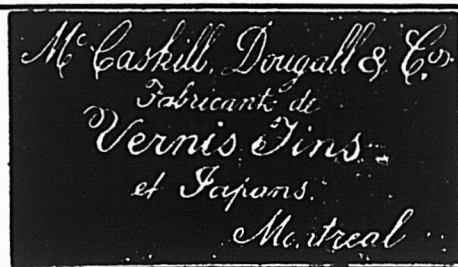 Mc Caskill, Dougall & Cos.
Fabricant de
Vernis Fins
et Japans.
Montreal